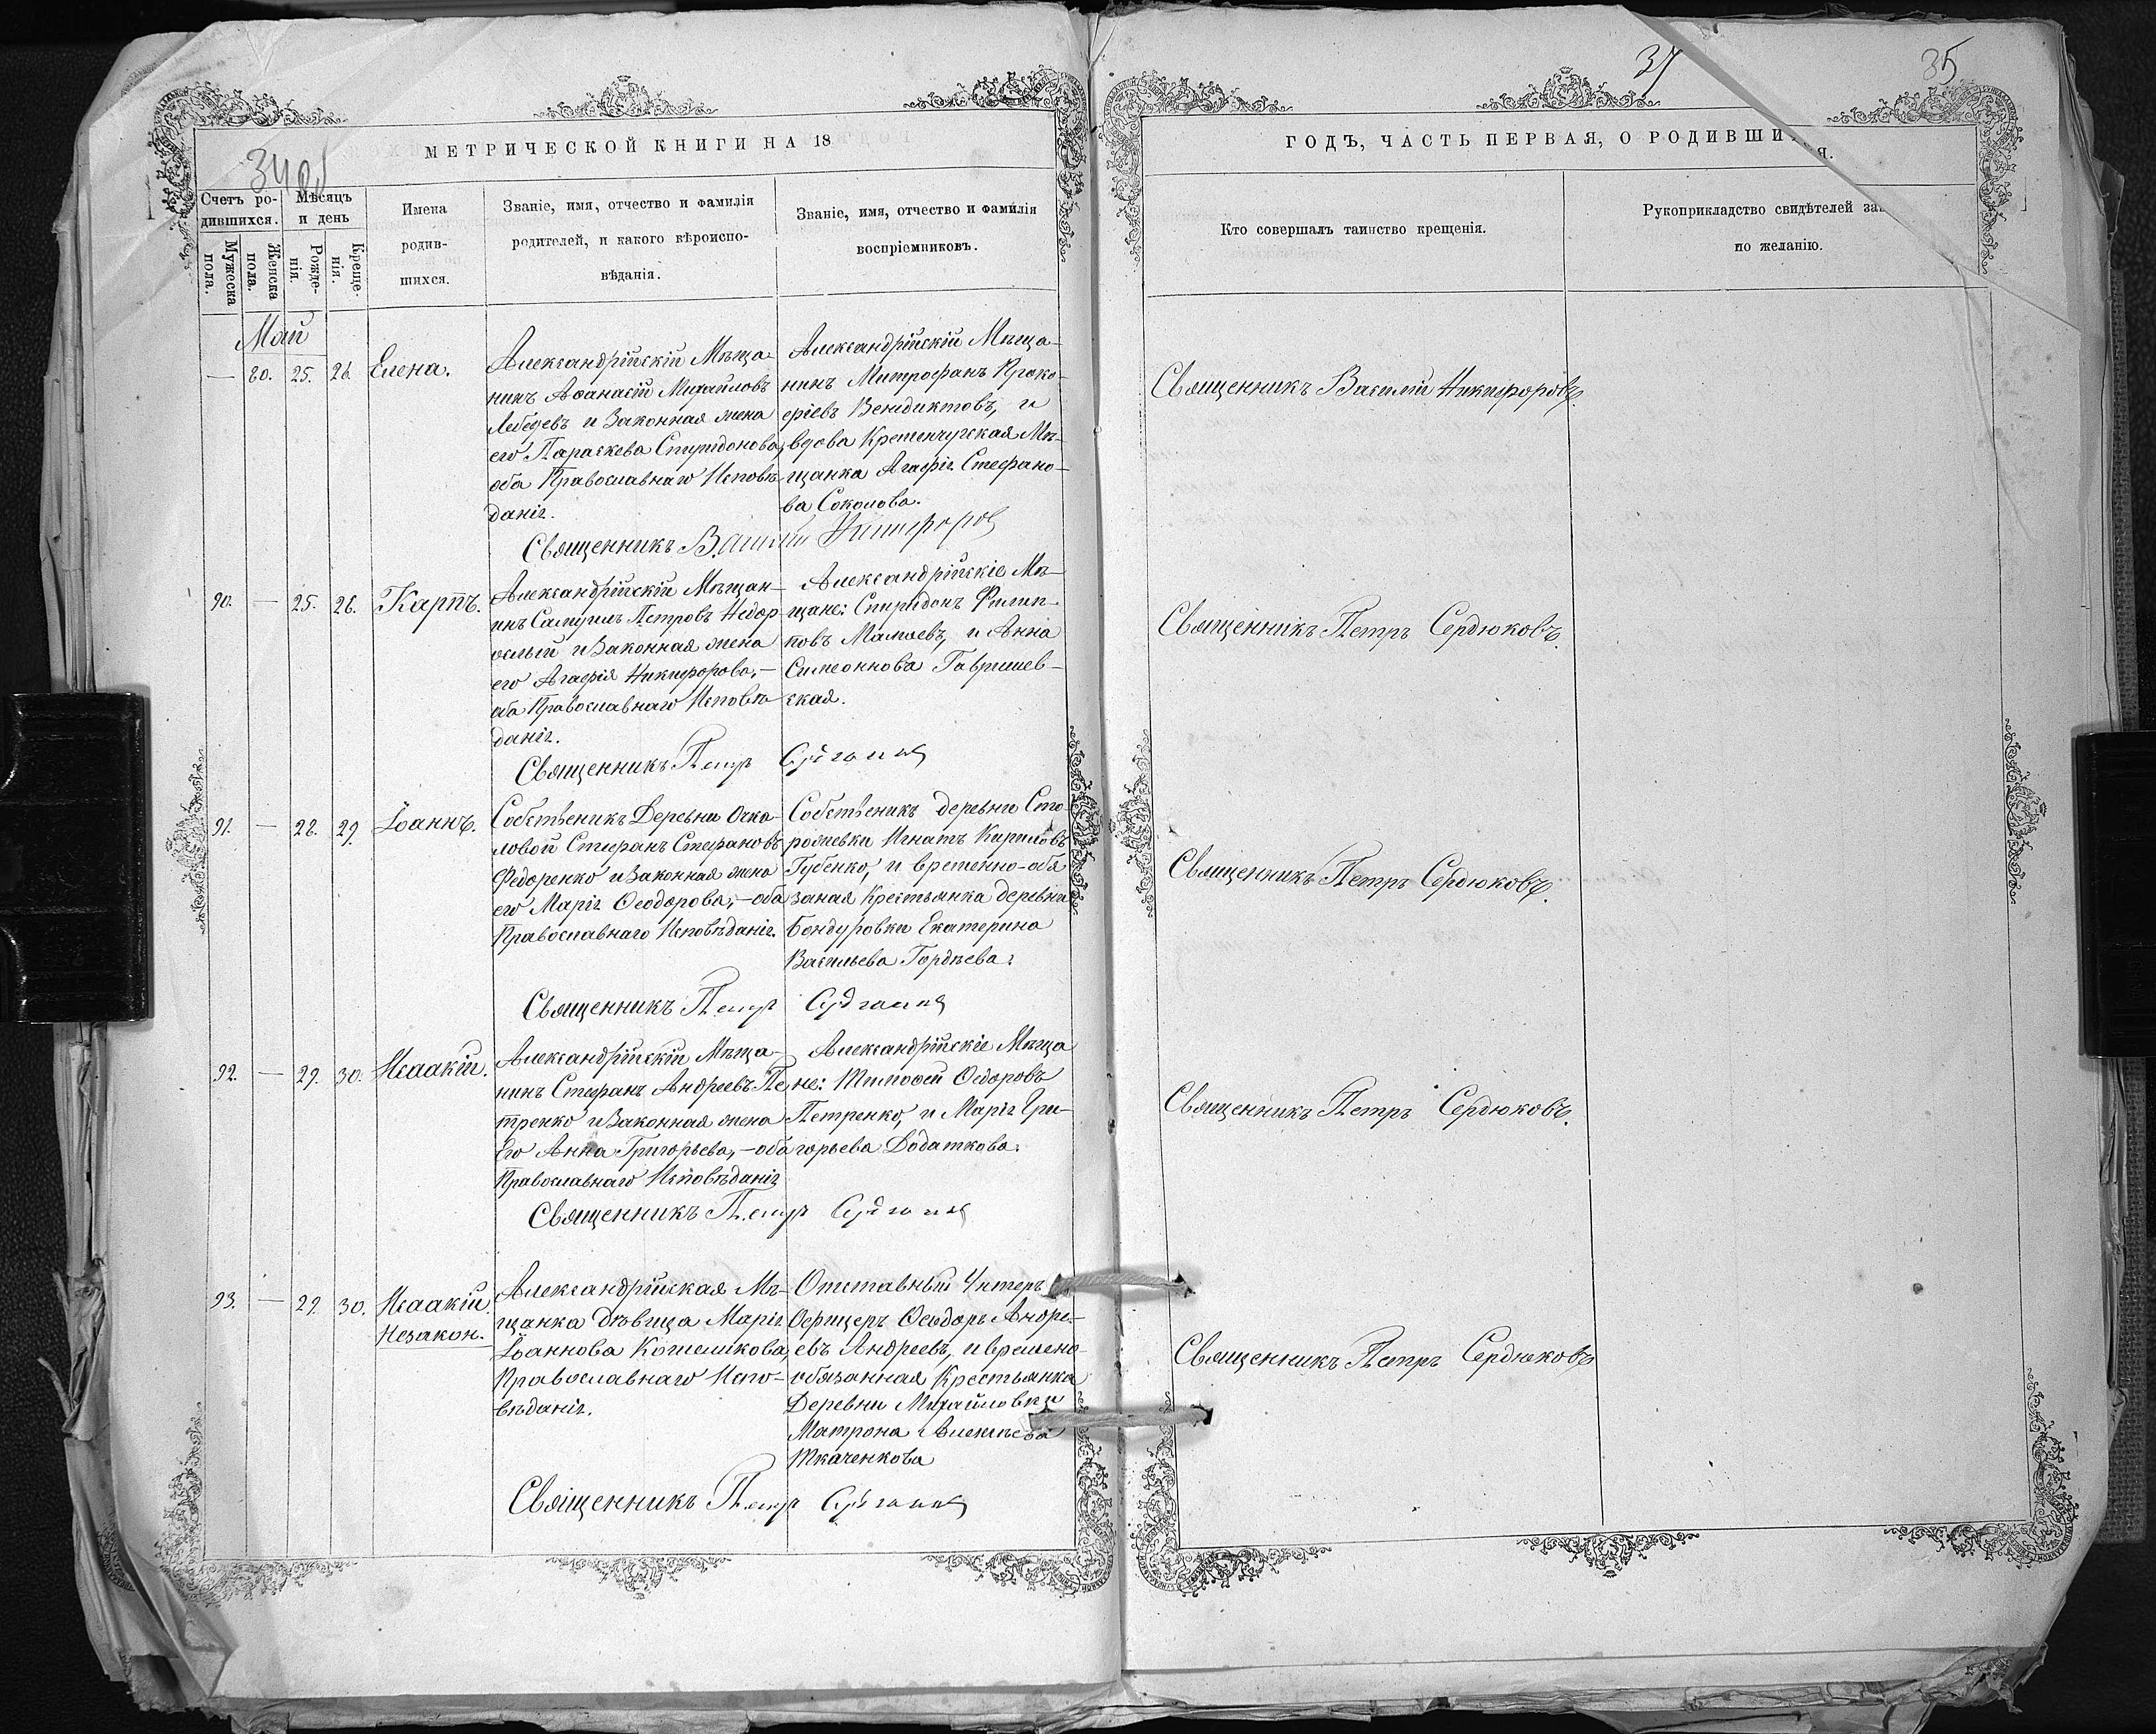 34об
МЕТРИЧЕСКОЙ КНИГИ НА 18
Счетъ ро-
дившихся.
Мѣсяцъ
и день
Мужеска
пола.
Женска
пола.
Рожде-
нія.
Креще-
нія.
Имена
родив-
шихся.
Званіе, имя, отчество и фамилія
родителей, и какого вѣроиспо-
вѣданія.
Званіе, имя, отчество и фамилія
воспріемниковъ.
Май
— 80. 25. 26. Елена.
Александрійскій Мѣща-
нинъ Аѳанасій Михайловъ
Лебедевъ и Законная жена
его Параскева Спиридонова,
оба Православнаго Исповѣ-
данія.
Александрійскій Мѣща-
нинъ Митрофанъ Проко-
фіевъ Венидиктовъ, и
вдова Кременчугская Мѣ-
щанка Агафія Стефано-
ва Соколова.
Священникъ Василій Никифоровъ
90. — 25. 26. Карпъ.
Александрійскій Мѣщан-
инъ Самуилъ Петровъ
и Законная жена
его Агафія Никифорова,—
оба Православнаго Исповѣ-
данія.
Александрійскіе Мѣ-
щане: Спиридонъ Филип-
повъ Мамаевъ, и Анна
Симеоннова Гавришев-
ская.
Священникъ Петръ
91. — 28. 29. Іоаннъ.
Собственикъ Деревни Очка-
ловой Стефанъ Стефановъ
Федоренко и Законная жена
его Марія Ѳеодорова,—оба
Православнаго Исповѣданія.
Собственикъ деревни Сто-
рожевки Игнатъ Кириловъ
Губенко, и временно-обя
заная Крестьянка деревни
Бондуровки Екатерина
Васильева Гордѣева.
Священникъ Петръ
92. — 29. 30. Исаакій.
Александрійскій Мѣща-
нинъ Стефанъ Андреевъ Пе
тренко и Законная жена
Его Анна Григорьева,—оба
Православнаго Исповѣданія
Александрійскіе Мѣща
не: Тимоѳей Ѳедоровъ
Петренко, и Марія Гри-
горьева Додаткова.
Священникъ Петръ
93. — 29. 30. Исаакій.
Незакон.
Александрійская Мѣ-
щанка дѣвица Марія
Іоаннова Котелникова,
Православнаго Испо-
вѣданія.
Отставный Унтеръ
Офицеръ Ѳеодоръ Андре-
евъ Андреевъ, и времено-
обязанная Крестьянка
Деревни Михайловки
Матрона Алексѣева
Ткаченкова
Священникъ Петръ
35
ГОДЪ, ЧАСТЬ ПЕРВАЯ, О РОДИВШИ
Я.
Кто совершалъ таинство крещенія.
Рукоприкладство свидѣтелей за
по желанію.
Священникъ Василій Никифоровъ.
Священникъ Петръ Сердюковъ.
Священникъ Петръ Сердюковъ.
Священникъ Петръ Сердюковъ.
Священникъ Петръ Сердюковъ